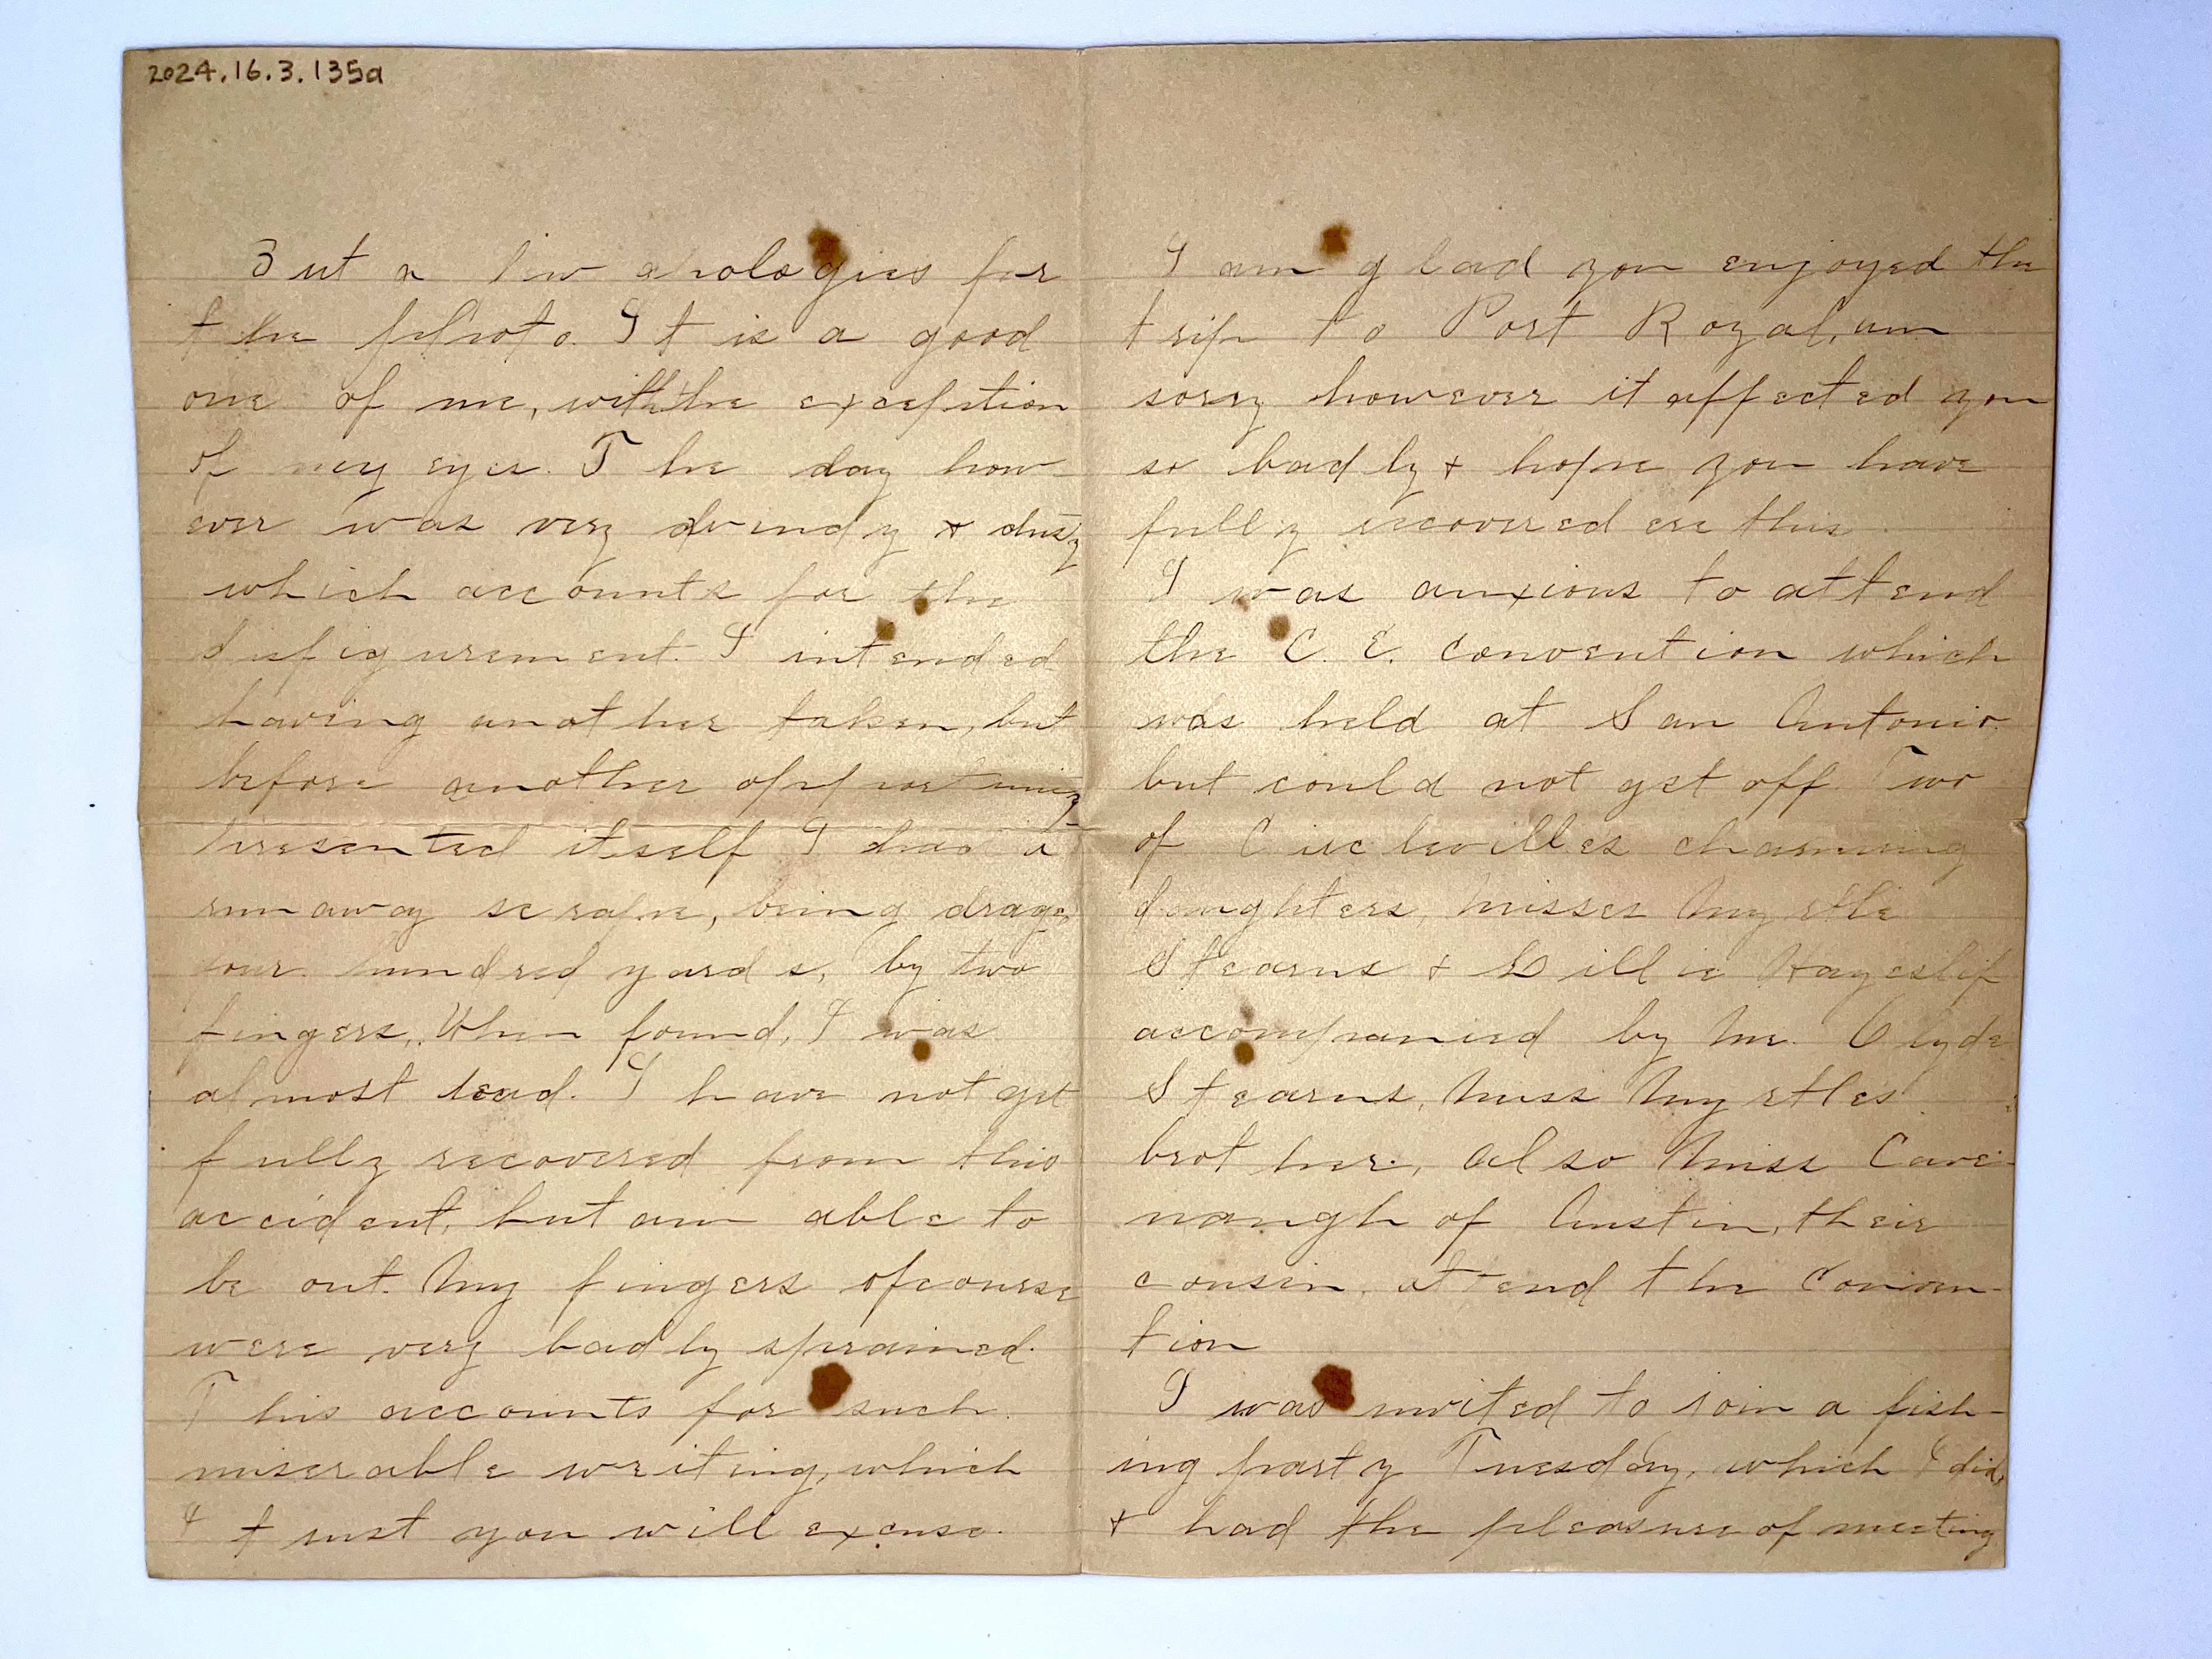 2024.16.3.135a
But a few apologies for
the photo. It is a good
one of me, with the exception
of my eyes. The day how
ever was very windy & dusty
which accounts for the
disfigurement. I intended
having another taken, but
before another opportunity
presented itself I had a
runaway scrape, being
four hundred yards, by two
fingers. When found, I was
almost dead. I have not yet
fully recovered from this
accident, but am able to
be out. My fingers ofcourse
were very badly sprained.
This accounts for such
miserable writing, which
I trust you will excuse.
I am glad you enjoyed the
trip to Port Royal, am
sorry however it affected you
so badly & hope you have
fully recovered ere this.
I was anxious to attend
the C. E. convention which
was held at San Antonio
but could not get off. Two
of Circlevilles charming
daughters, Misses Myrtle
Stearns & Lillie
accompanied by Mr. Clyde
Stearns, Miss Myrtles
brother, also Miss Cava-
naugh of Austin, their
cousin, attend the Conven-
tion
I was invited to join a fish-
ing party Tuesday, which I did,
& had the pleasure of meeting